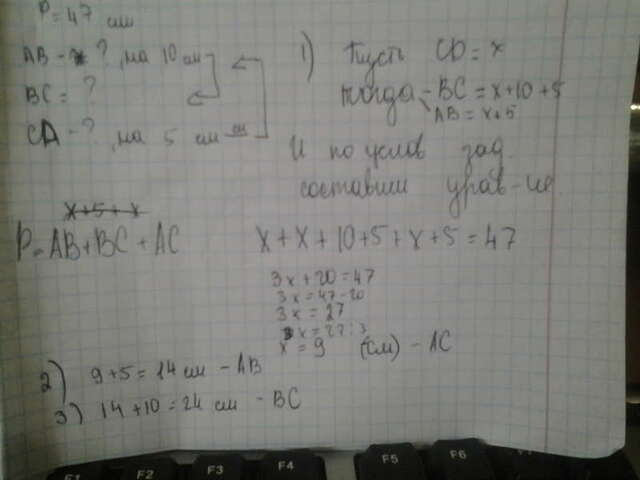 P=47 см
AB - ? , на 10 см
BC = ?
CД - ? , на 5 см
1) Пусть CD = x
тогда - BC = x+10+5
AB = x+5
И по услов зад.
составим урав-ие.
x+5+x
P=AB+BC+AC
x+x+10+5+x+5=47
3x+20=47
3x=47-20
3x=27
x=27:3
x=9 (см) - AC
2) 9+5=14 см - AB
3) 14+10=24 см - BC
F1 F2 F3 F4 F5 F6